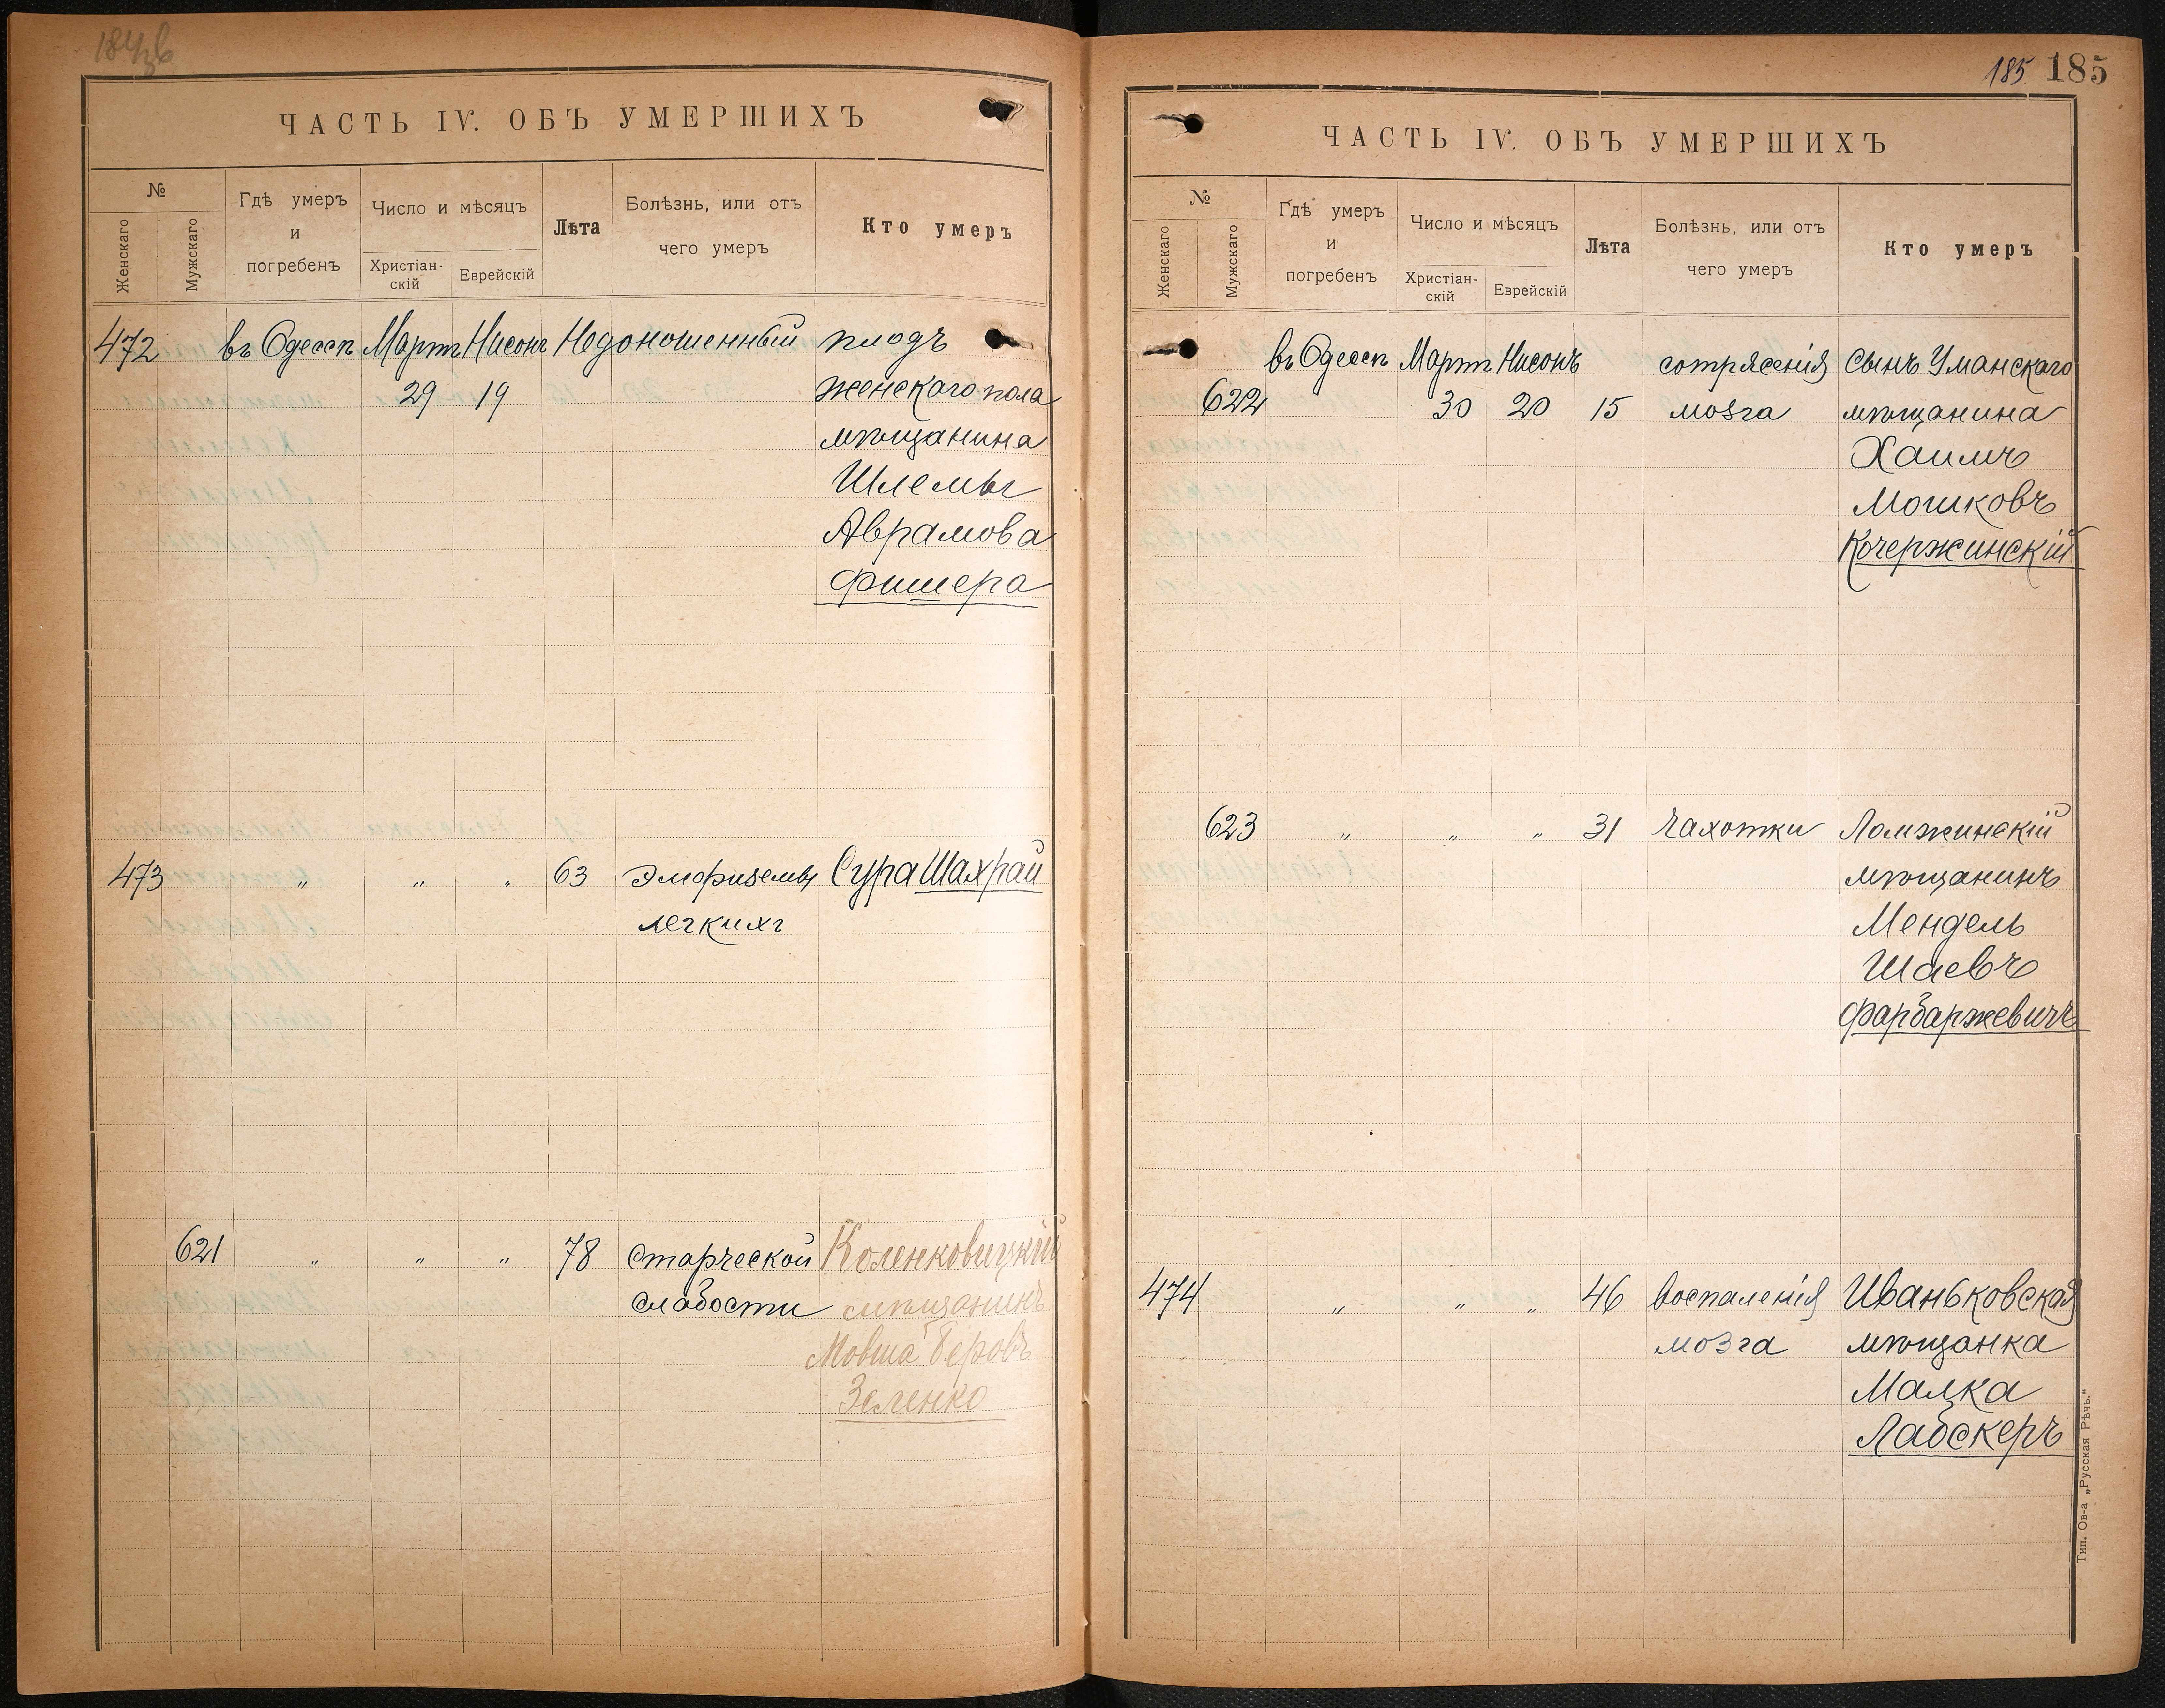 ЧАСТЬ IV. ОБЪ УМЕРШИХЪ
№
Женскаго
Мужскаго
Гдѣ умеръ
и
погребенъ
Число и мѣсяцъ
Христіан-
скій
Еврейскій
Лѣта
Болѣзнь, или отъ
чего умеръ
Кто умеръ
472 въ Одессѣ Мартъ Нисонъ Недоношенный плодъ
29 19 женскаго пола
мѣщанина
Шлемы
Аврамова
Фишера
473 " " " 63 Эмфиземы Сура Шахрай
легкихъ
621 " " " 78 старческой Коленковицкій
слабости мѣщанинъ
Мовша Беровъ
Зеленко
185 185
ЧАСТЬ IV. ОБЪ УМЕРШИХЪ
№
Женскаго
Мужскаго
Гдѣ умеръ
и
погребенъ
Число и мѣсяцъ
Христіан-
скій
Еврейскій
Лѣта
Болѣзнь, или отъ
чего умеръ
Кто умеръ
въ Одессѣ Мартъ Нисонъ сотрясенія сынъ Уманскаго
622 30 20 15 мозга мѣщанина
Хаимъ
Мошковъ
Кочержинскій
623 " " " 31 Чахотки Ломжинскій
мѣщанинъ
Мендель
Шаевъ
Фарбаржевичъ
474 " " " 46 воспаленія Иваньковская
мозга мѣщанка
Малка
Лабскеръ
Тип. Ов-а „Русская Рѣчь."